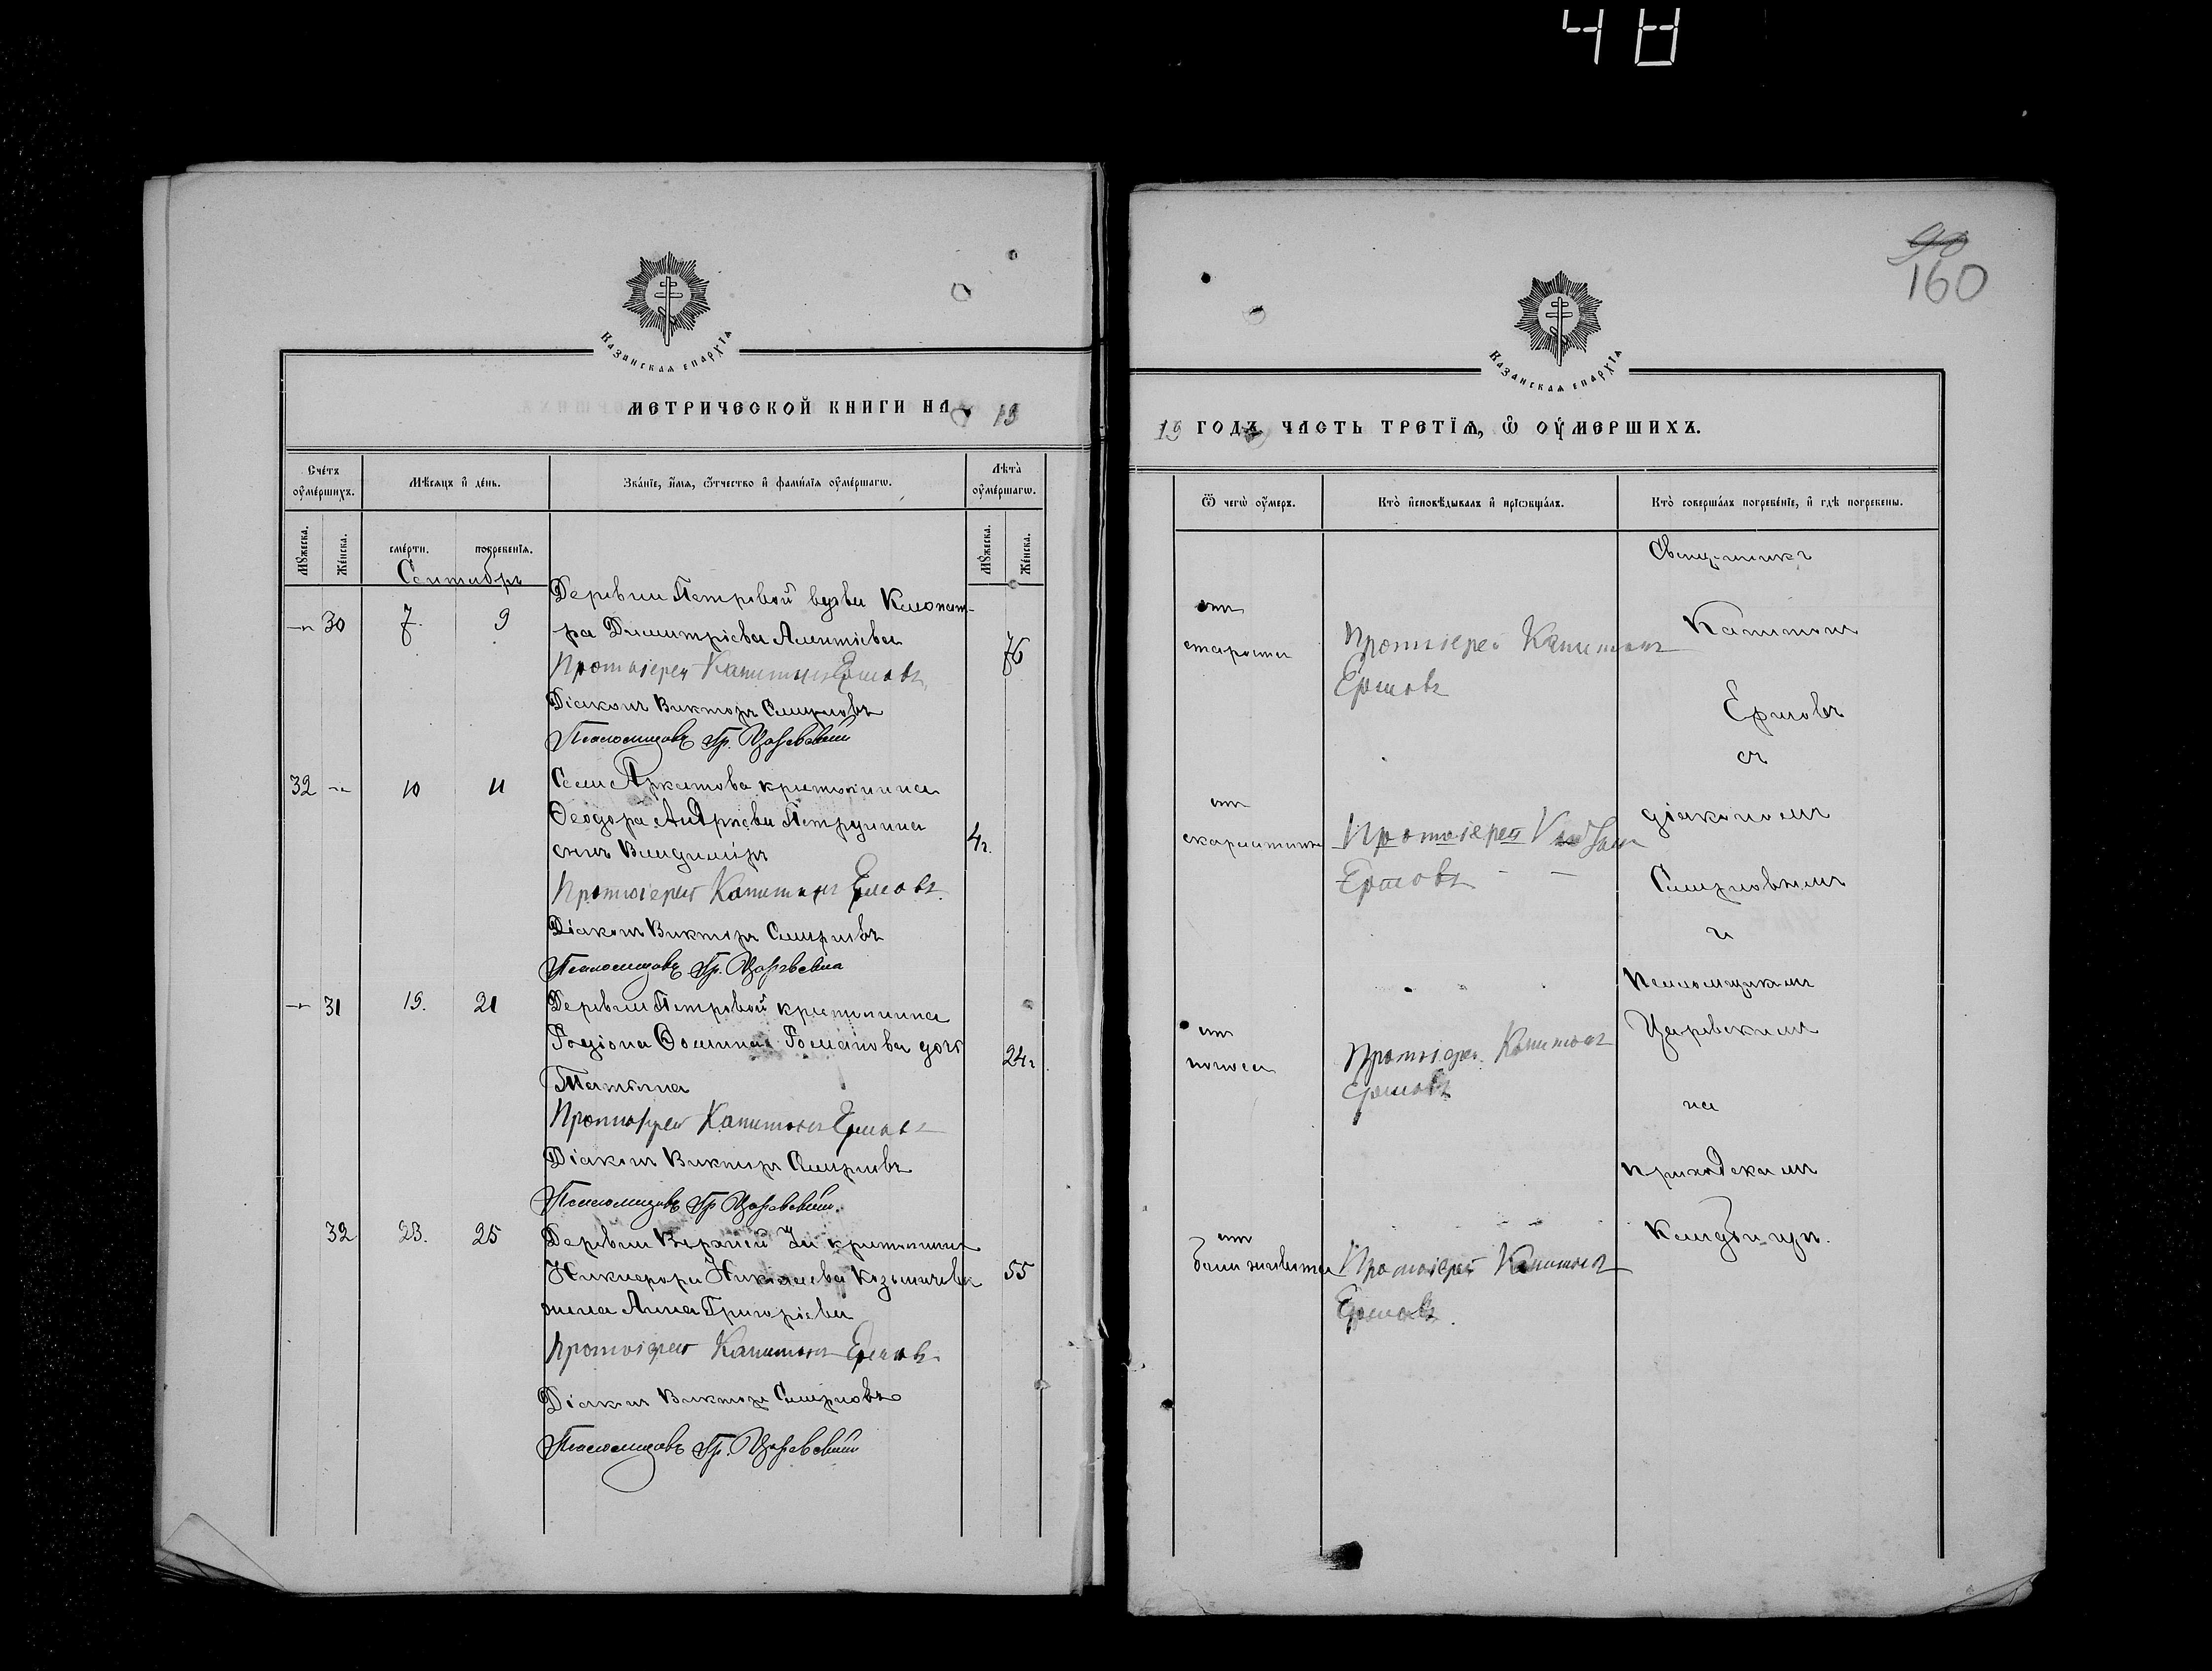 48
90
160
КАЗАНСКАЯ ЕПАРХІЯ
МЕТРИЧЕСКОЙ КНИГИ НА 19
Счётъ оумершихъ.
Мѣсяцъ и день.
Званіе, имя, отчество и фамилія оумершагѡ.
Лѣта оумершагѡ.
Мꙋжеска.
Женска.
смерти.
погребенія.
Мꙋжеска.
Женска.
Сентябрь
30 7. 9 Деревни Петровой вдова Клеопат-
ра Димитріева Алентіева 76
Протоіерей Капитонъ Ершовъ
Діаконъ Викторъ Смирновъ
Псаломщикъ Гр. Царевскій
32 10 11 Села Аркатова крестьянина
Ѳеодора Андреева Петрунина
сынъ Владиміръ 4г.
Протоіерей Капитонъ Ершовъ.
Діаконъ Викторъ Смирновъ
Псаломщикъ Гр. Царевскій
31 19. 21 Деревни Петровой крестьянина
Родіона Ѳомина Романова дочь 24г
Татіана
Протоіерей Капитонъ Ершовъ
Діаконъ Викторъ Смирновъ
Псаломщикъ Гр Царевскій.
32 23. 25 Деревни Верхней Іи крестьянина
Никифора Николаева Козьмичева 55
жена Анна Григоріева
Протоіерей Капитонъ Ершовъ
Діаконъ Викторъ Смирновъ
Псаломщикъ Гр. Царевскій
КАЗАНСКАЯ ЕПАРХІЯ
19 ГОДЪ ЧАСТЬ ТРЕТІЯ, Ѡ ОУМЕРШИХЪ.
Ѿ чегѡ оумеръ.
Кто исповѣдывалъ и пріѡбщалъ.
Кто совершалъ погребеніе, и гдѣ погребены.
отъ
старости
Протоіерей Капитонъ
Ершовъ
отъ
скарлатины
Протоіерей Капитонъ
Ершовъ
отъ
поноса
Протоіерей Капитонъ
Ершовъ
отъ
боли живота
Протоіерей Капитонъ
Ершовъ.
Священникъ
Капитонъ
Ершовъ
съ
діакономъ
Смирновымъ
и
Псаломщикомъ
Царевскимъ
на
приходскомъ
кладбищѣ.